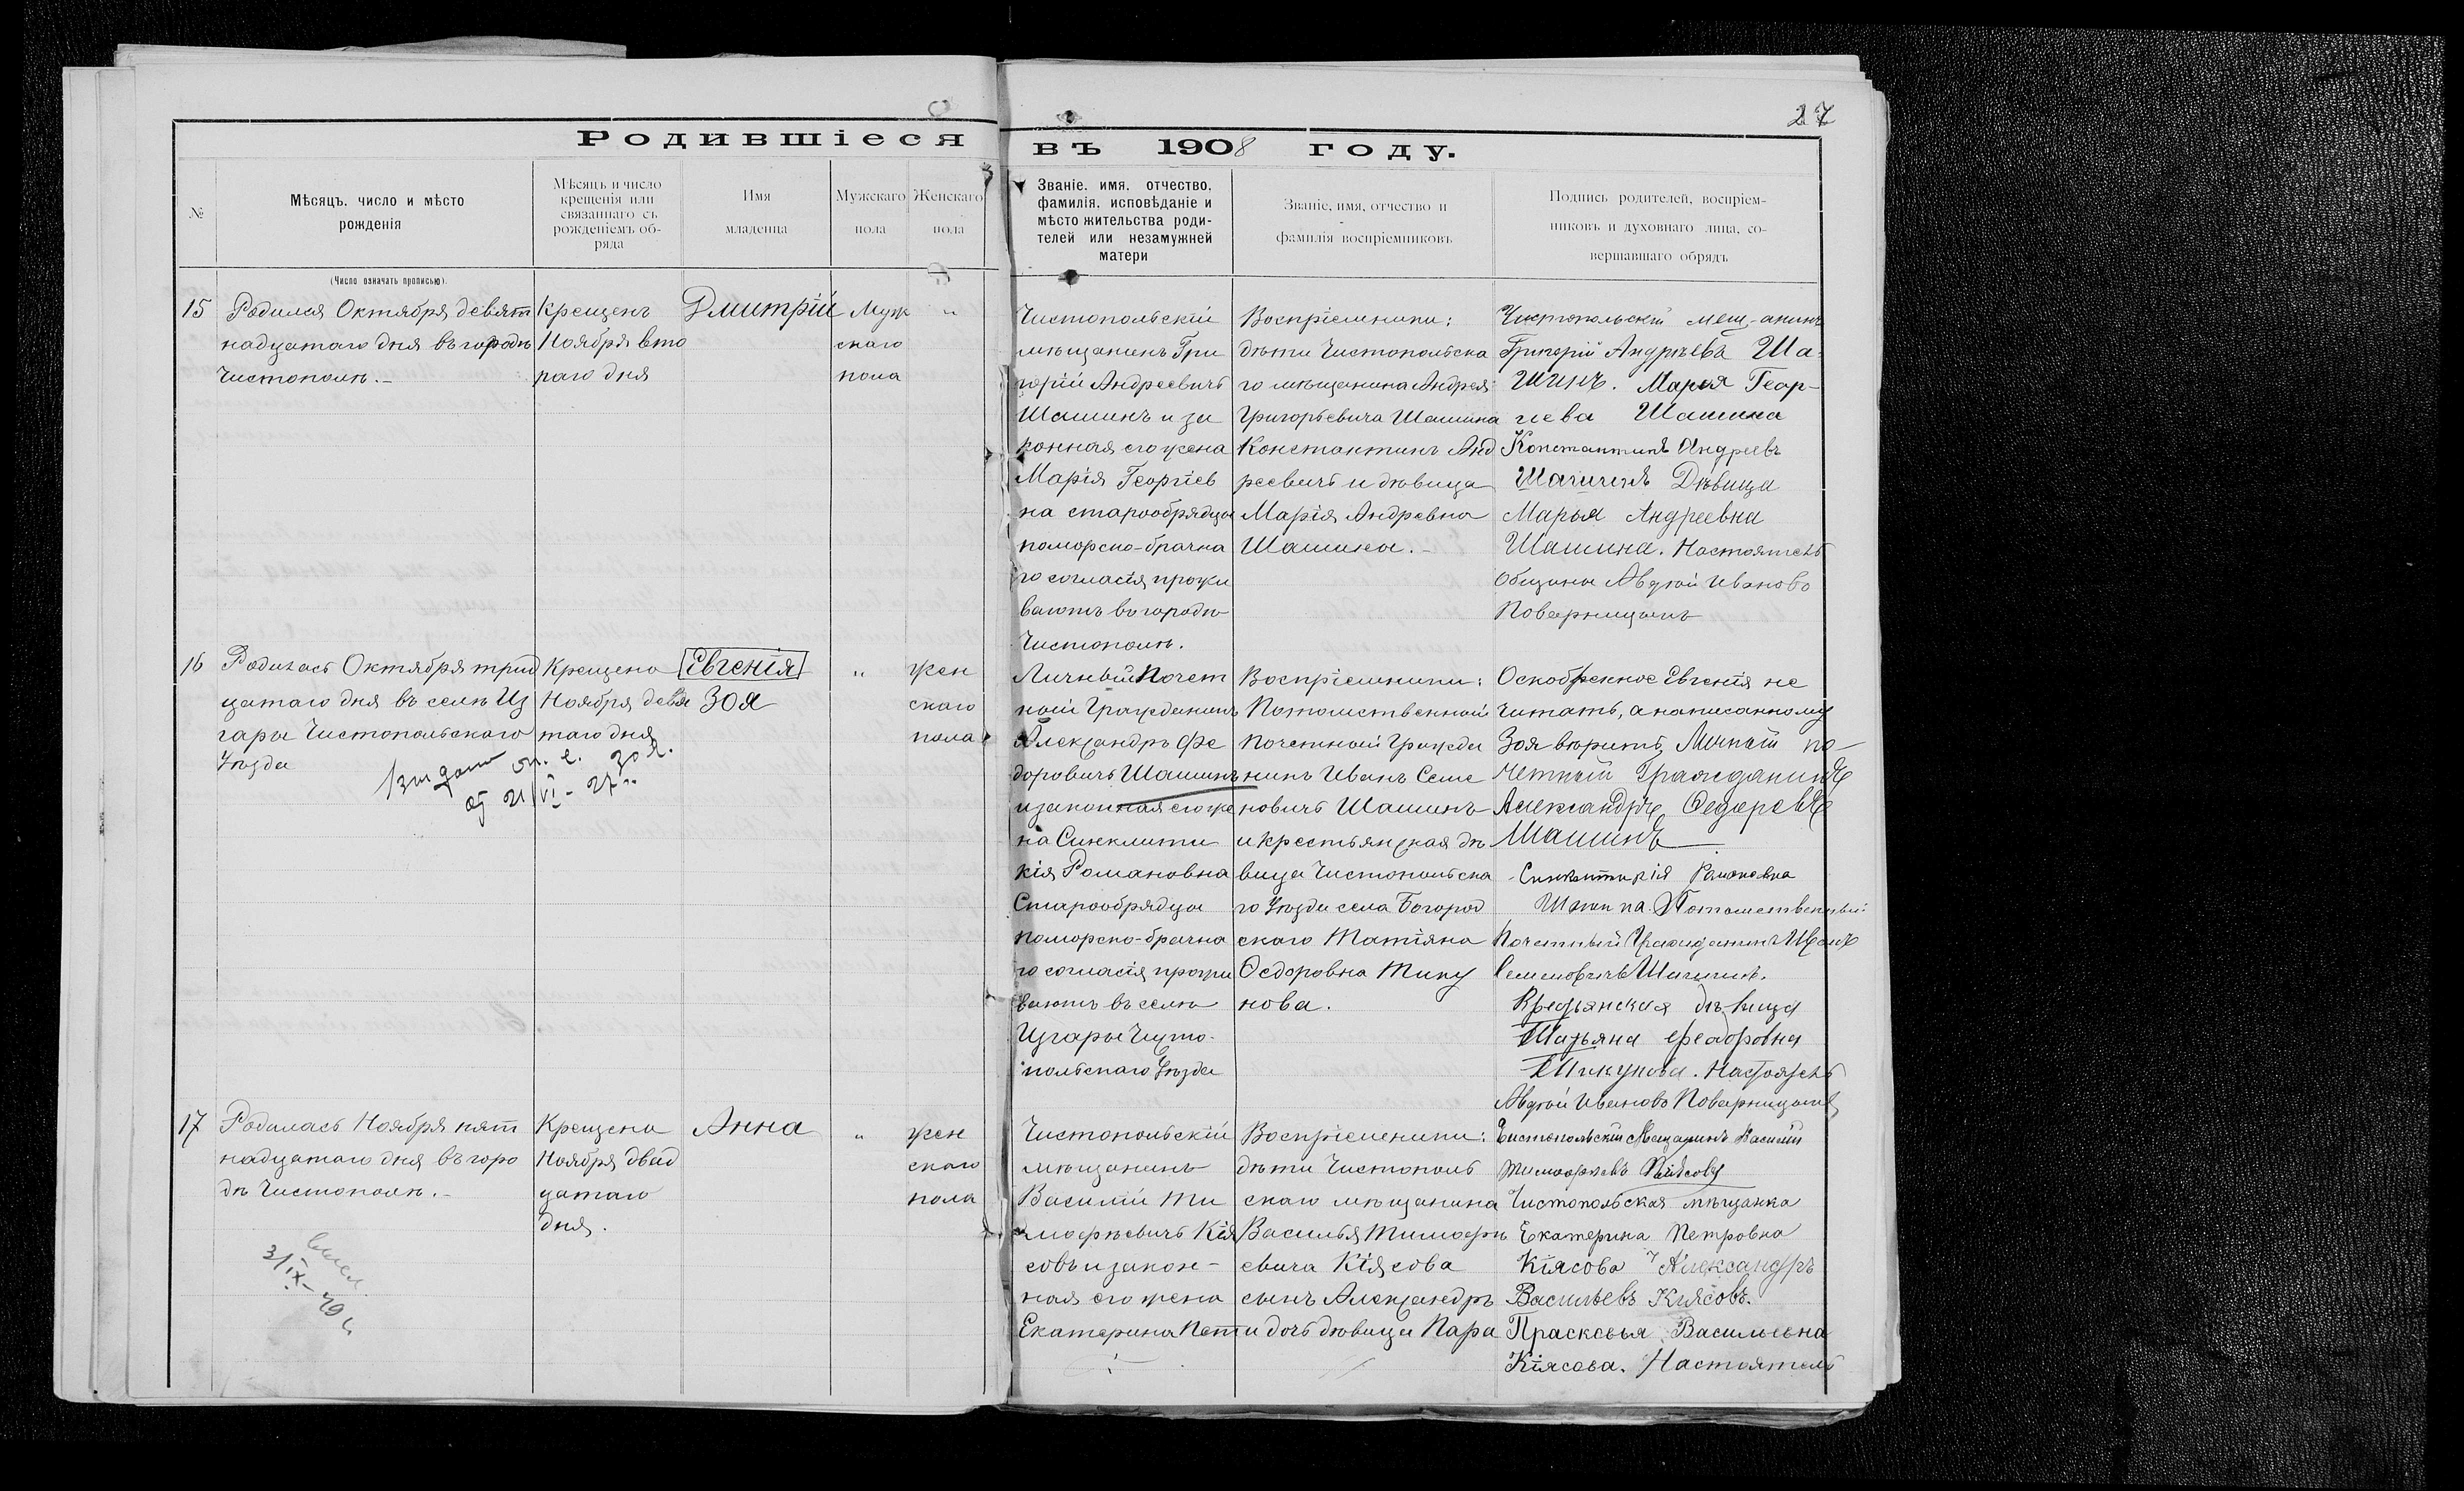 27
Родившіеся въ 1908 году.
№
Мѣсяцъ, число и мѣсто
рожденія
Мѣсяцъ и число
крещенія или
связаннаго съ
рожденіемъ об-
ряда
Имя
младенца
Мужскаго
пола
Женскаго
пола
Званіе, имя, отчество,
фамилія, исповѣданіе и
мѣсто жительства роди-
телей или незамужней
матери
Званіе, имя, отчество и
фамилія воспріемниковъ
Подпись родителей, воспріем-
никовъ и духовнаго лица, со-
вершавшаго обрядъ
(Число означать прописью).
15
Родился Октября девят
надцатаго дня въ городѣ
Чистополѣ.-
Крещенъ
Ноября вто
раго дня
Дмитрій
Муж
скаго
пола
"
Чистопольскій
мѣщанинъ Гри
горій Андреевичъ
Шашинъ и за
конная его жена
Марія Георгіев
на старообрядцы
поморско-брачна
го согласія прожи
ваютъ въ городѣ
Чистополѣ.
Воспріемники:
дѣти Чистопольска
го мѣщанина Андрея
Григорьевича Шашина
Константинъ Анд
реевичъ и дѣвица
Марія Андревна
Шашины.-
Чистопольскій мещ-анинъ
Григорій Андрѣевъ Ша-
шинъ. Марья Геор-
гиева Шашина
Константинъ Андреевъ
Шашинъ Дѣвица
Марья Андреевна
Шашина. Настоятель
Общины Авдѣй Ивановъ
Поварницынъ
16
Родилась Октября трид
цатаго дня въ селѣ Из
гары Чистопольскаго
Уѣзда
Крещена
Ноября девя
таго дня
Евгенія
Зоя
"
жен
скаго
пола
Зоя.
21/VI-27
Личный Почет
ный Гражданинъ
Александръ Фе
доровичъ Шашинъ
и законная его же
на Синклити
кія Романовна
Старообрядцы
поморско-брачна
го согласія прожи
ваютъ въ селѣ
Изгары Чисто-
польскаго Уѣзда
Воспріемники:
Потомственный
почетный Гражда
нинъ Иванъ Семе
новичъ Шашинъ
и крестьянская дѣ
вица Чистопольска
го Уѣзда села Богород
скаго Татіяна
Ѳедоровна Тику
нова.
Оскобленное Евгенія не
читать, а написанному
Зоя вѣрить, Личный по-
четный Гражданинъ
Александръ Ѳедоровъ
Шашинъ
Синклитикія Романовна
Шашина. Потомственный
Почетный Гражданинъ Иванъ
Семеновичъ Шашинъ.
Крестьянская дѣвица
Татьяна Феадоровна
Тикунова. Настоятель
Авдѣй Ивановъ Поварницынъ
17
Родилась Ноября пят
надцатаго дня въ горо
дѣ Чистополѣ.-
Крещена
Ноября двад
цатаго
дня.
Анна
"
жен
скаго
пола
3/IX-29 г.
Чистопольскій
мѣщанинъ
Василій Ти
мофѣевичъ Кія
совъ и закон-
ная его жена
Екатерина Пет
Воспріемники:
дѣти Чистополь
скаго мѣщанина
Василья Тимофѣ
евича Кіясова
сынъ Александръ
и дочь дѣвица Пара
Чистопольскій Мещанинъ Василій
Тимофѣевъ Кіясовъ
Чистопольская мѣщанка
Екатерина Петровна
Кіясова Александръ
Васильевъ Киясовъ.
Прасковья Васильевна
Кіясова. Настоятель